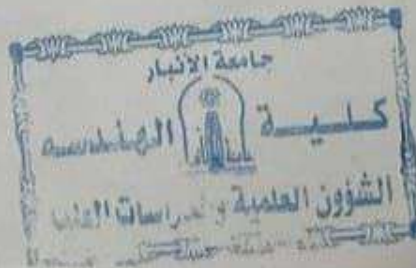 جامعة الانبار
كليــــة الهندسه
الشؤون العلمية والدراسات العليا